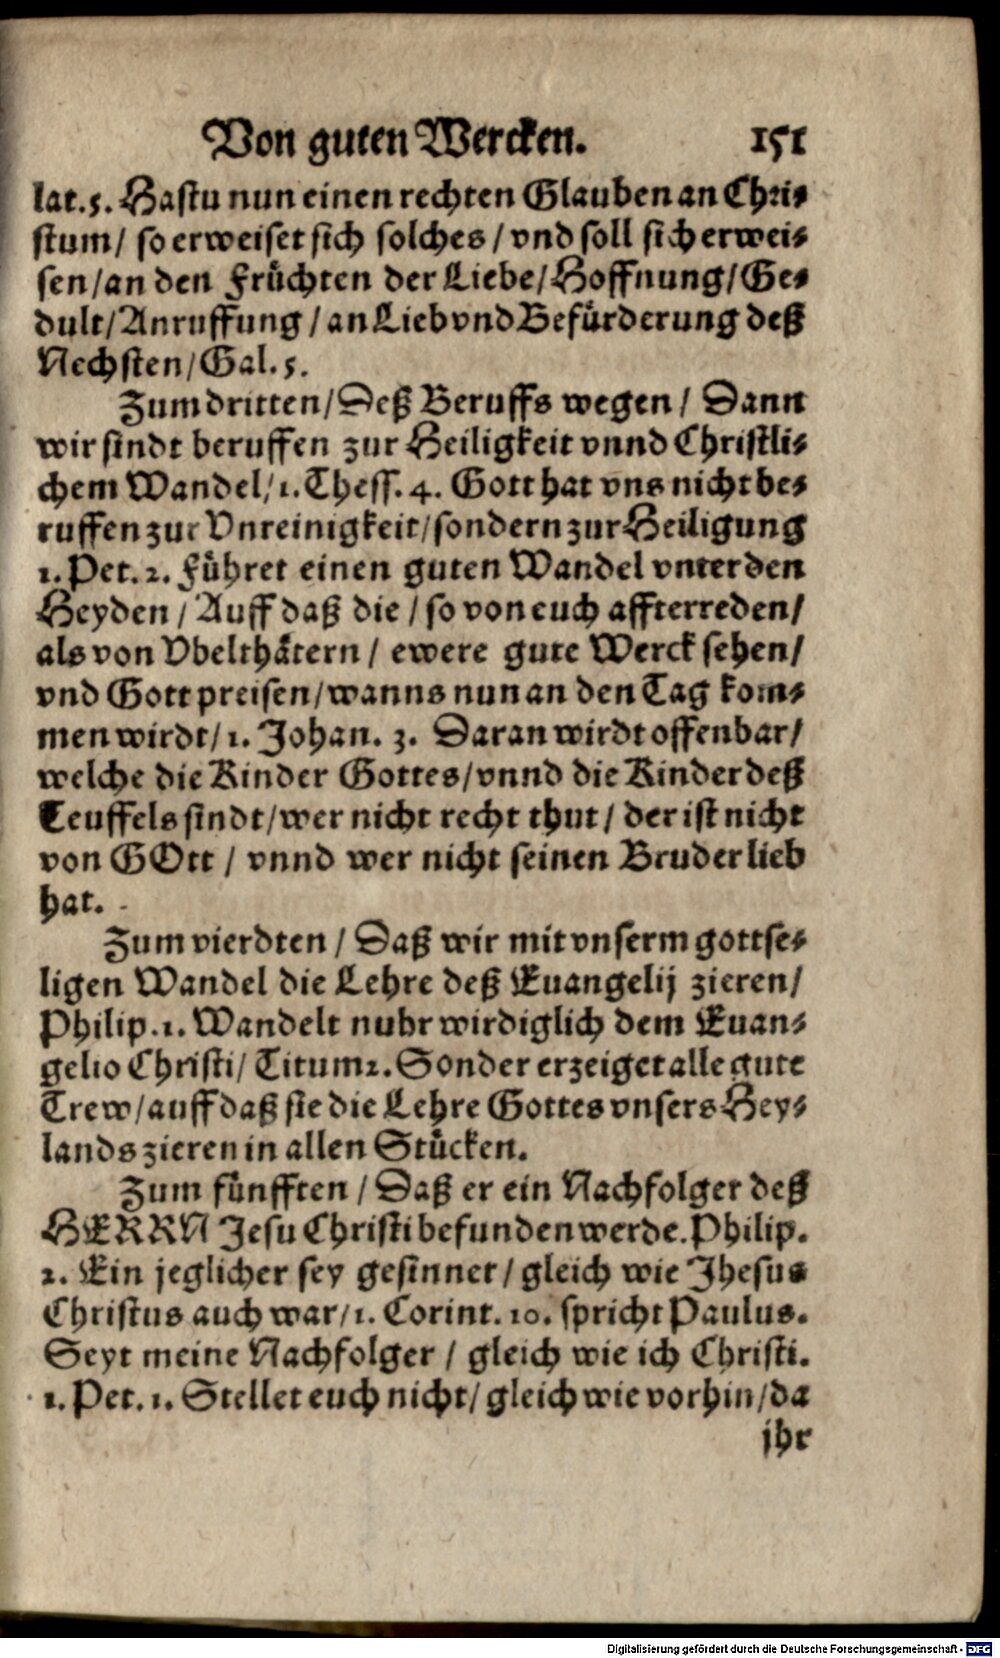 Von guten Wercken. 151
lat. 5. Hastu nun einen rechten Glauben an Chri-
stum / so erweiset sich solches / vnd soll sich erwei-
sen / an den Früchten der Liebe / Hoffnung / Ge-
dult / Anruffung / an Lieb vnd Befürderung deß
Nechsten / Gal. 5.
Zum dritten / Deß Beruffs wegen / Dann
wir sindt beruffen zur Heiligkeit vnnd Christli-
chem Wandel / 1. Thess. 4. Gott hat vns nicht be-
ruffen zur Vnreinigkeit / sondern zur Heiligung
1. Pet. 2. Führet einen guten Wandel vnter den
Heyden / Auff daß die / so von euch affterreden /
als von Vbelthätern / ewere gute Werck sehen /
vnd Gott preisen / wanns nun an den Tag kom-
men wirdt / 1. Johan. 3. Daran wirdt offenbar /
welche die Kinder Gottes / vnnd die Kinder deß
Teuffels sindt / wer nicht recht thut / der ist nicht
von GOtt / vnnd wer nicht seinen Bruder lieb
hat.
Zum vierdten / Daß wir mit vnserm gottse-
ligen Wandel die Lehre deß Euangelij zieren /
Philip. 1. Wandelt nuhr wirdiglich dem Euan-
gelio Christi / Titum 2. Sonder erzeiget alle gute
Trew / auff daß sie die Lehre Gottes vnsers Hey-
lands zieren in allen Stücken.
Zum fünfften / Daß er ein Nachfolger deß
HERRN Jesu Christi befunden werde. Philip.
2. Ein jeglicher sey gesinnet / gleich wie Jhesus
Christus auch war / 1. Corint. 10. spricht Paulus.
Seyt meine Nachfolger / gleich wie ich Christi.
1. Pet. 1. Stellet euch nicht / gleich wie vorhin / da
jhr
Digitalisierung gefördert durch die Deutsche Forschungsgemeinschaft - DFG